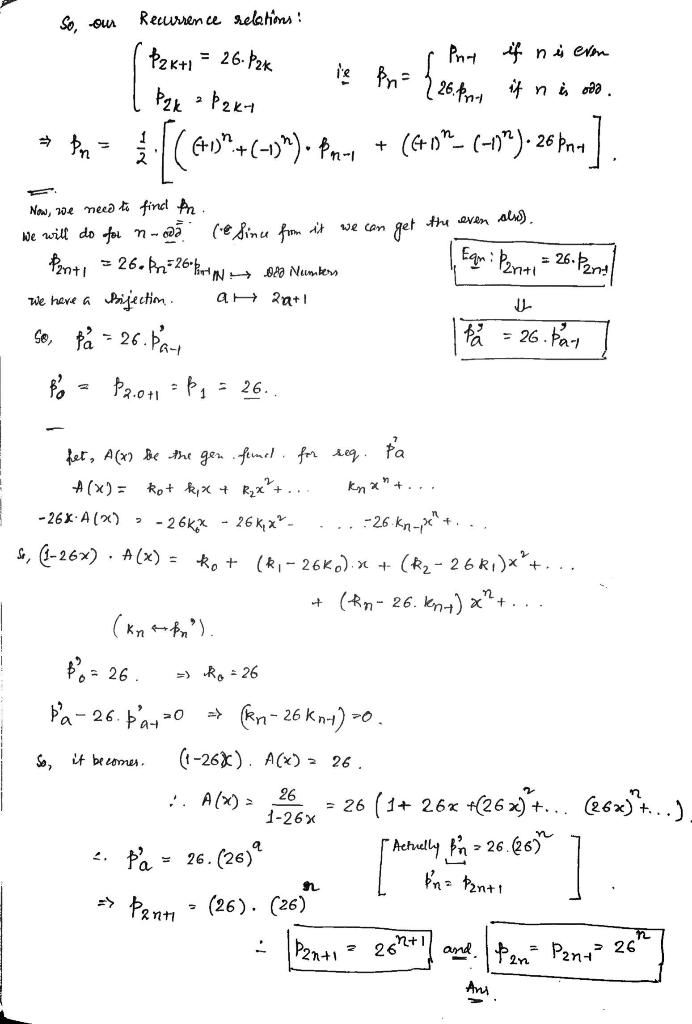 So, our Recurrence relations:
{ p_{2k+1} = 26. p_{2k}
p_{2k} = p_{2k-1}
i.e p_n = { p_{n-1} if n is even
26.p_{n-1} if n is odd.
⇒ p_n = 1/2 . [ ((+1)^n + (-1)^n) . p_{n-1} + ((+1)^n - (-1)^n) . 26 p_{n-1} ] .
Now, we need to find p_n.
We will do for n-odd. (Since from it we can get the even also).
p_{2n+1} = 26. p_{2n} = 26. p_{2n-1} ℕ ↦ odd Numbers
Eqn: p_{2n+1} = 26. p_{2n-1}
We have a bijection. a ↦ 2a+1
⇓
So, p'_a = 26. p'_{a-1}
p'_a = 26. p'_{a-1}
p'_0 = p_{2.0+1} = p_1 = 26.
Let, A(x) be the gen. funct. for seq. p'_a
A(x) = k_0 + k_1x + k_2x^2 + ... k_n x^n + ...
-26x.A(x) = -26k_0x - 26k_1x^2 - ... -26.k_{n-1}x^n + ...
So, (1-26x) . A(x) = k_0 + (k_1 - 26k_0).x + (k_2 - 26k_1)x^2 + ...
+ (k_n - 26. k_{n-1}) x^n + ...
(k_n ↔ p_n').
p'_0 = 26. ⇒ k_0 = 26
p'_a - 26. p'_{a-1} = 0 ⇒ (k_n - 26k_{n-1}) = 0.
So, it becomes. (1-26x) . A(x) = 26.
∴ A(x) = 26/(1-26x) = 26 (1 + 26x + (26x)^2 + ... (26x)^n + ...)
∴ p'_a = 26. (26)^a
[ Actually p'_n = 26.(26)^n
p'_n = p_{2n+1} ] .
⇒ p_{2n+1} = (26) . (26)^n
∴ p_{2n+1} = 26^{n+1} and. p_{2n} = p_{2n-1} = 26^n
Ans.